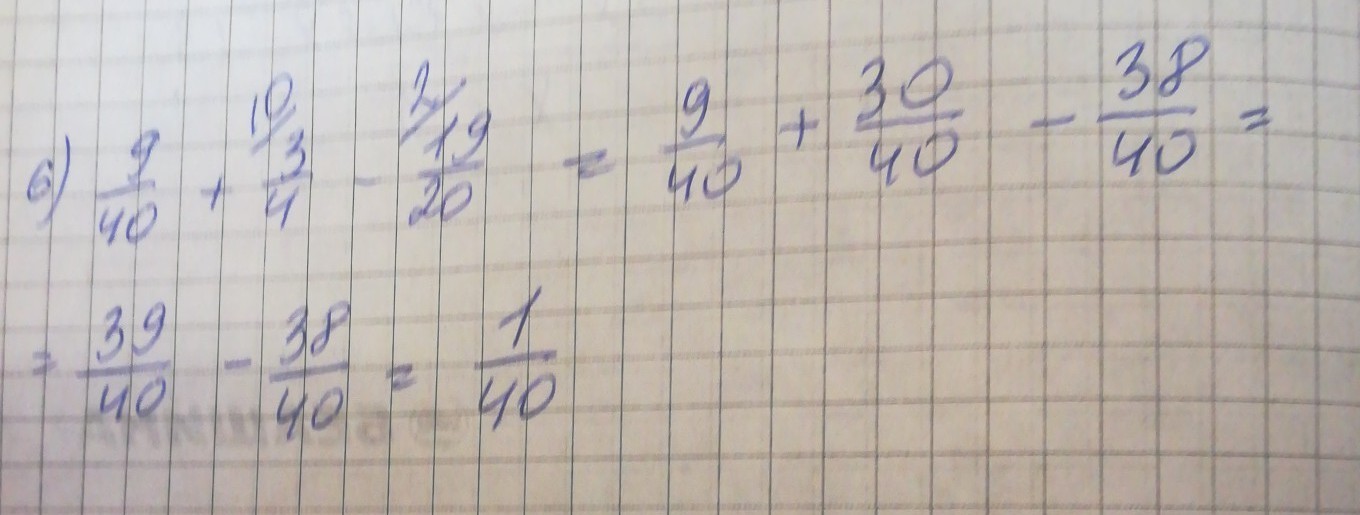 б) 9/40 + 10/ 3/4 - 2/ 19/20 = 9/40 + 30/40 - 38/40 =
= 39/40 - 38/40 = 1/40